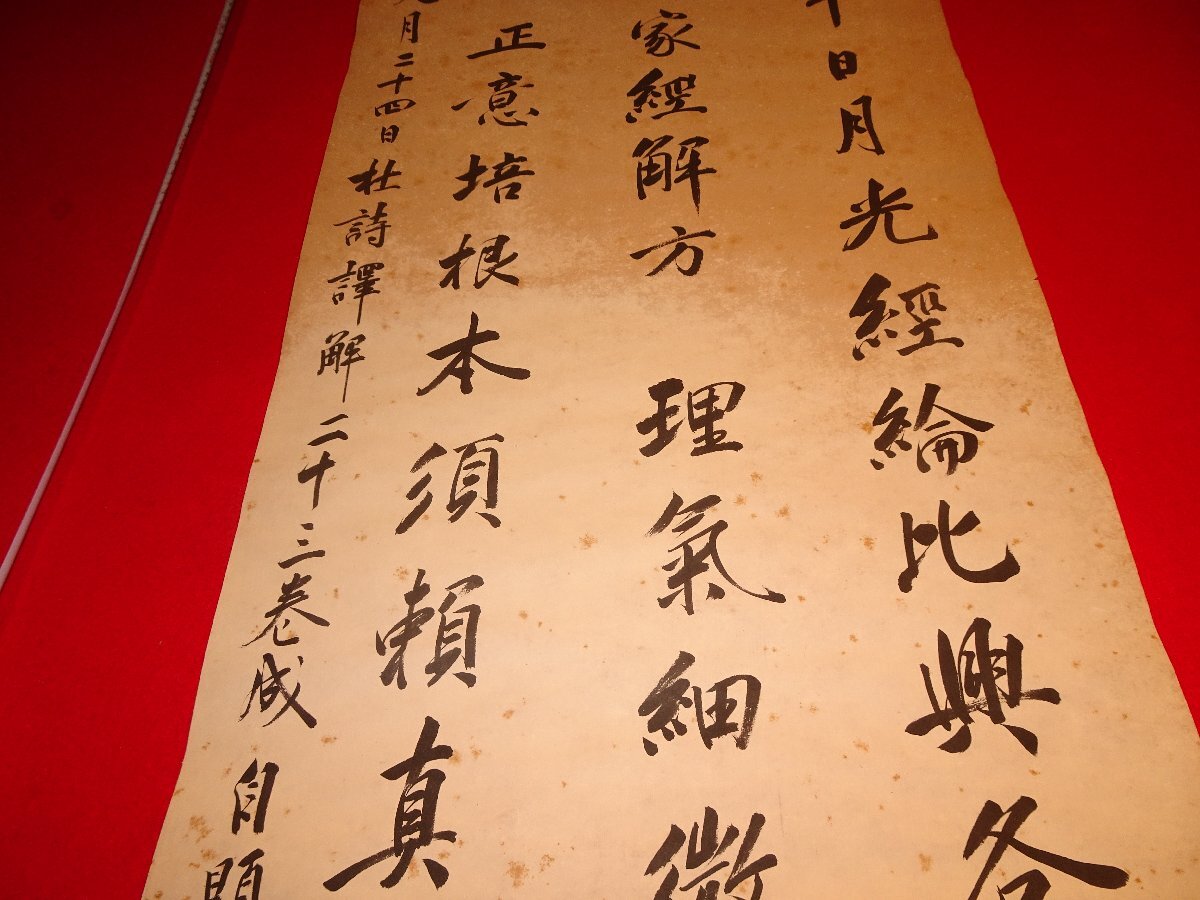 日月光經綸比興各
家經解方理氣細微
正意培根本須賴真
月二十四日杜詩譯解二十三卷成自題